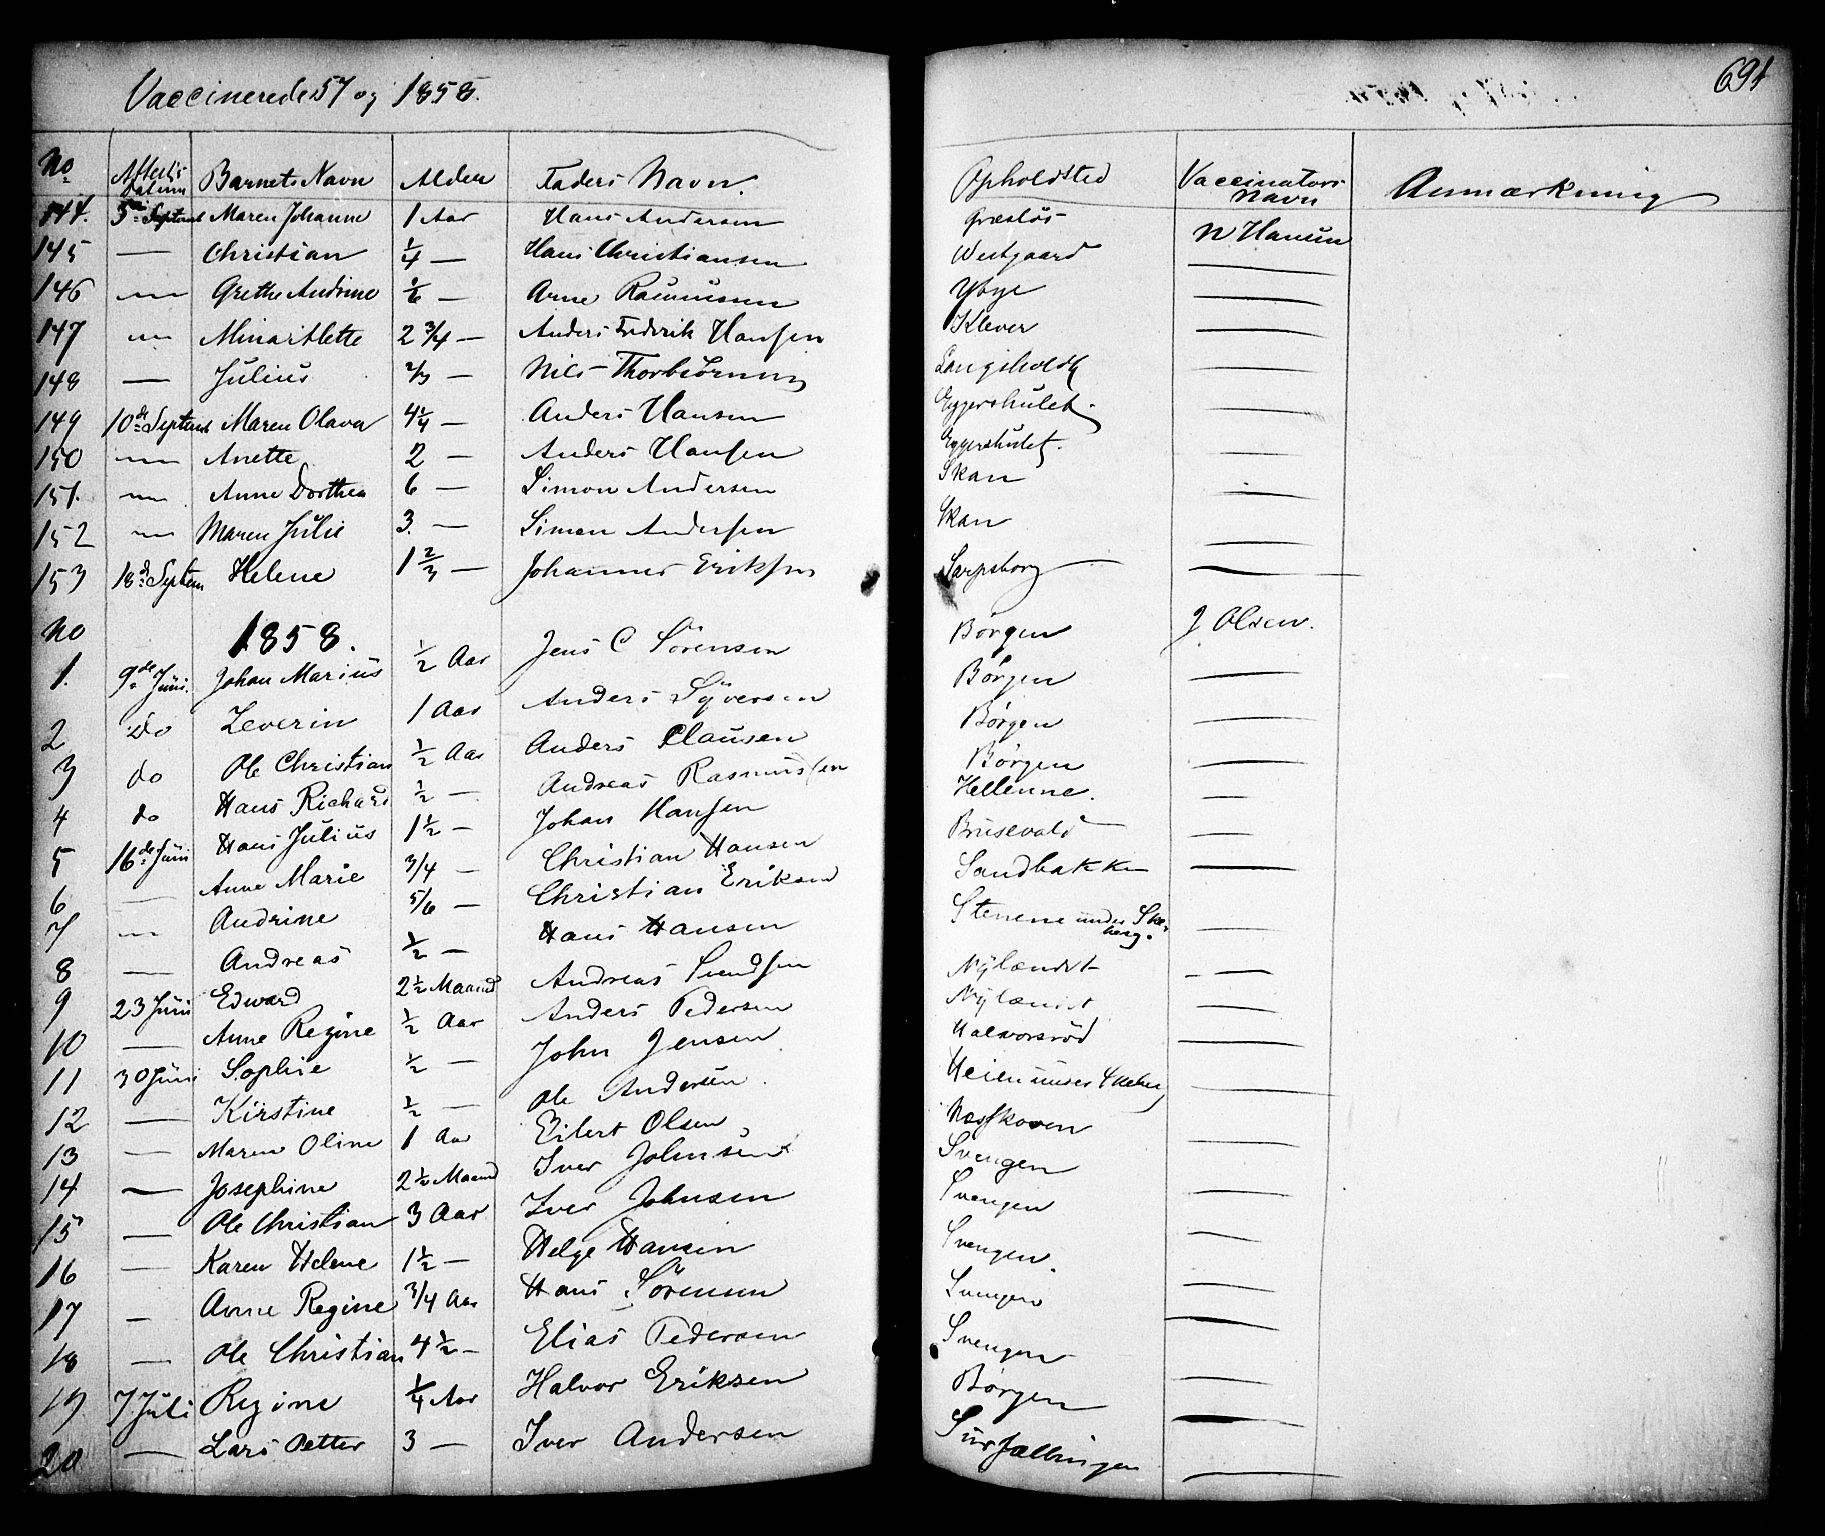 Vaccinerede 57 og 1858.
691
No Attests Datum Barnets Navn Alder Faders Navn. Opholdsted Vaccinators Navn Anmærkning
144. 5te Septemb Maren Johanne 1 Aar Hans Andersen Græsløs N Hansen
145 — Christian 1/4 — Hans Christiansen Westgaard —
146 — Grethe Andrine 1/6 — Arne Rasmussen Ybye —
147 — Mina Alette 2 3/4 — Anders Frederik Hansen Klever —
148 — Julius 2/3 — Nils Thorbiørnsen Langsholdt —
149 10de Septemb Maren Olava 4 1/4 — Anders Hansen Eggershulet —
150 — Anette 2 — Anders Hansen Eggershulet. —
151. — Anne Dorthea 6 — Simon Andersen Skan —
152 — Maren Julie 3. — Simon Andersen Skan —
153 18de Septem Helene 1 2/3 — Johannes Eriksen Sarpsborg —
No 1858.
1. 9de Juni. Johan Marius 1/2 Aar Jens C Sørensen Børgen J Olsen.
2 do Severin 1 Aar Anders Syversen Børgen —
3 do Ole Christian 1/2 Aar Anders Clausen Børgen —
4 do Hans Richard 1/2 — Andreas Rasmussen Børgen —
5 16de Juni Hans Julius 1 1/2 — Johan Hansen Hellenne. —
6 — Anne Marie 3/4 — Christian Hansen Brusevald —
7 — Andrine 5/6 — Christian Eriksen Sandbakken —
8 — Andreas 1/2 — Hans Hansen Stenene under Skeberg. —
9 23 Juni Edward 2 1/2 Maaned Andreas Svendsen Nylændet —
10 — Anne Regine 1/2 Aar Anders Pedersen Nylændet —
11 30 Juni Sophie 1/2 — John Jensen Halvorsrød —
12 — Kirstine 1/2 — Ole Andersen Heien under —
13 — Maren Oline 1 Aar Eilert Olsen Næsskoven —
14 — Josephine 2 1/2 Maaned Iver Johnsen Svengen —
15 — Ole Christian 3 Aar Iver Johnsen Svengen —
16 — Karen Helene 1 1/2 — Helge Hansen Svengen. —
17 — Anne Regine 3/4 Aar Hans Sørensen Svengen —
18 — Ole Christian 4 1/2 — Elias Pedersen Svengen —
19 7 Juli Regine 1/4 Aar Halvor Eriksen Børgen —
20 — Lars Petter 3 — Iver Andersen —